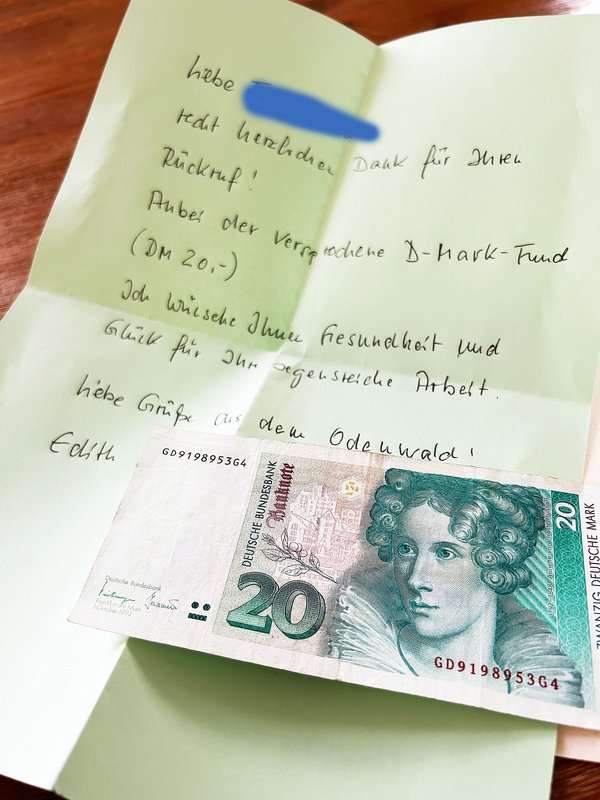 liebe
recht herzlichen Dank für Ihren
Rückruf!
Anbei der versprochene D-Mark-Fund
(DM 20,-)
Ich wünsche Ihnen Gesundheit und
Glück für Ihre segensreiche Arbeit.
liebe Grüße aus dem Odenwald!
Edith
GD9198953G4
DEUTSCHE BUNDESBANK
Banknote
20
Deutsche Bundesbank
Frankfurt am Main
1. Oktober 1993
20
GD9198953G4
ZWANZIG DEUTSCHE MARK